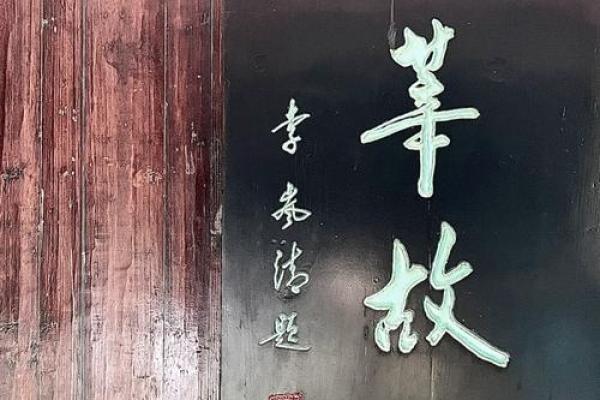 華故
李岚清题